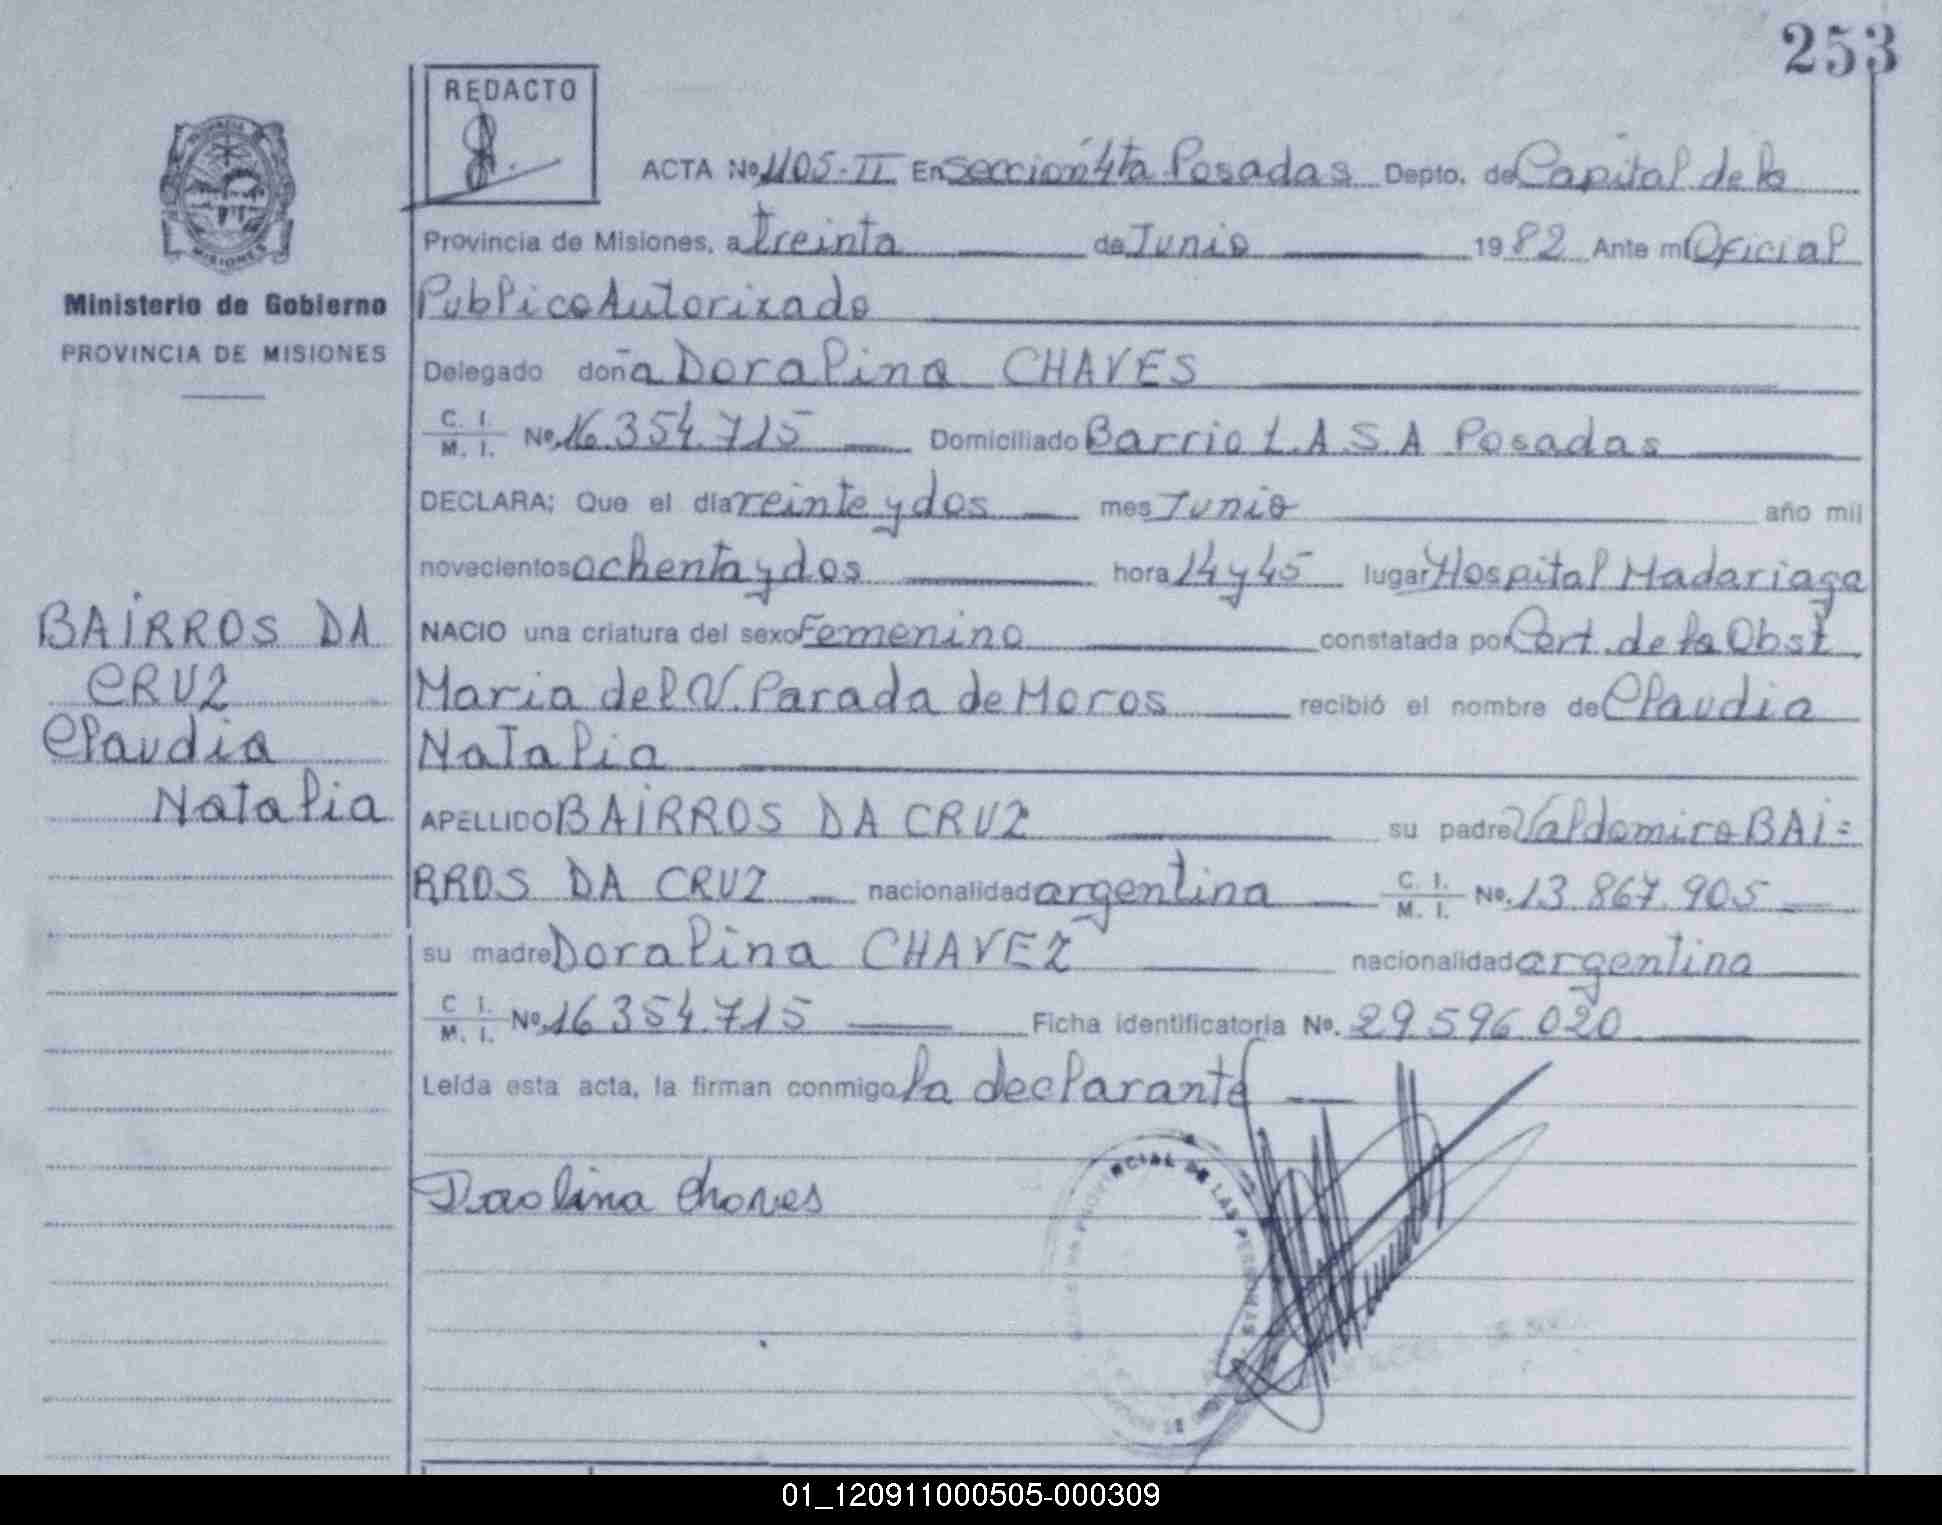 253
REDACTO
ACTA No. 1105-II En Sección 4ta Posadas Depto. de Capital de la
Provincia de Misiones, a treinta de Junio 1982 Ante mi Oficial
Publico Autorizado
Ministerio de Gobierno
PROVINCIA DE MISIONES
Delegado doña Doralina CHAVES
C. I. M. I. Nº 16.354.715 Domiciliado Barrio L.A.S.A Posadas
DECLARA: Que el día veinte y dos mes Junio año mil
novecientos ochenta y dos hora 14 y 45 lugar Hospital Madariaga
NACIO una criatura del sexo Femenino constatada por Cert. de la Obst
Maria del V. Parada de Moros recibió el nombre de Claudia
Natalia
BAIRROS DA
CRUZ
Claudia
Natalia
APELLIDO BAIRROS DA CRUZ su padre Valdomiro BAI=
RROS DA CRUZ nacionalidad argentina C. I. M. I. Nº. 13.867.905
su madre Doralina CHAVEZ nacionalidad argentina
C. I. M. I. Nº 16.354.715 Ficha identificatoria No. 29.596.020
Leída esta acta, la firman conmigo la declarante
Daolina Chaves
CIAL DE LAS PERS
01_120911000505-000309